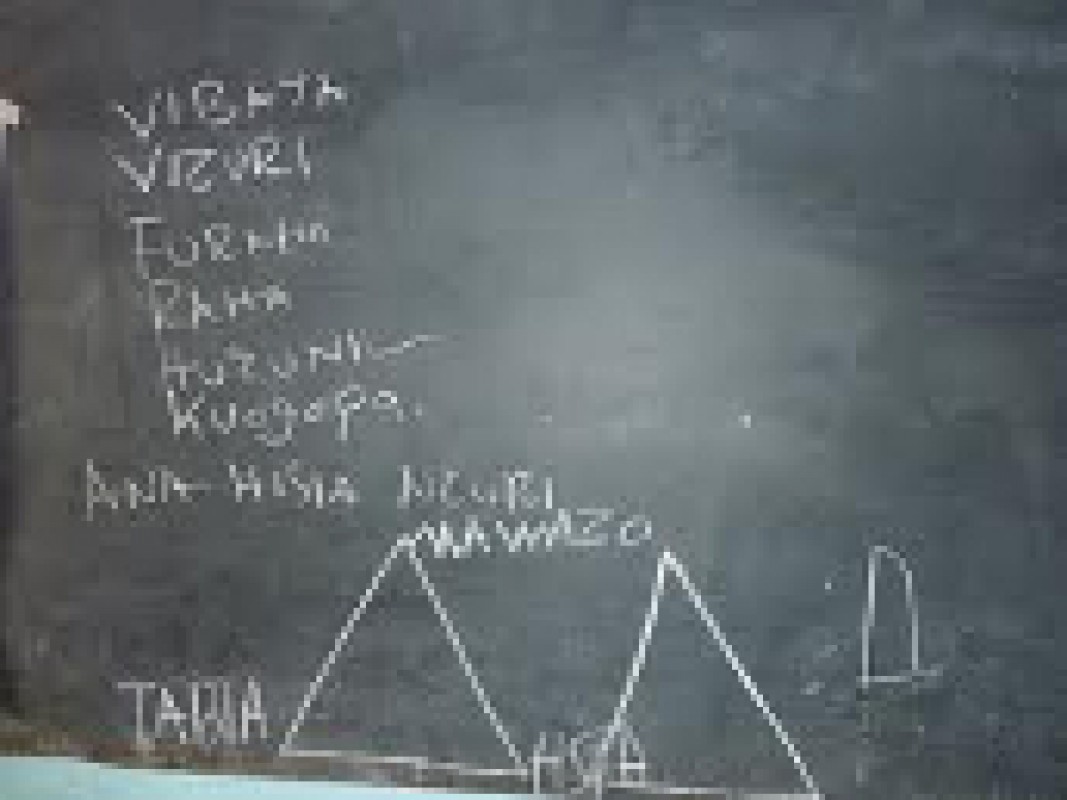 VIBAYA
VIZURI
FURAHA
RAHA
HUZUNI
Kuogopa.
ANA HISIA NZURI
MAWAZO
TABIA
HISIA